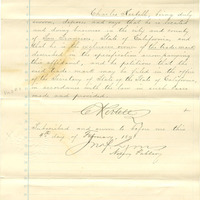 Charles Kohler, being duly
sworn, deposes and says that he is a resident
and doing business in the city and county
of San Francisco, State of California, and
that he is the exclusive owner of the trade mark
described in the specification accompanying
this affidavit, and he petitions that the
said trade mark may be filed in the office
of the Secretary of State of the State of California
in accordance with the law in such cases
made and provided.
C Kohler
Subscribed and sworn to before me this
day of February,
Notary Public